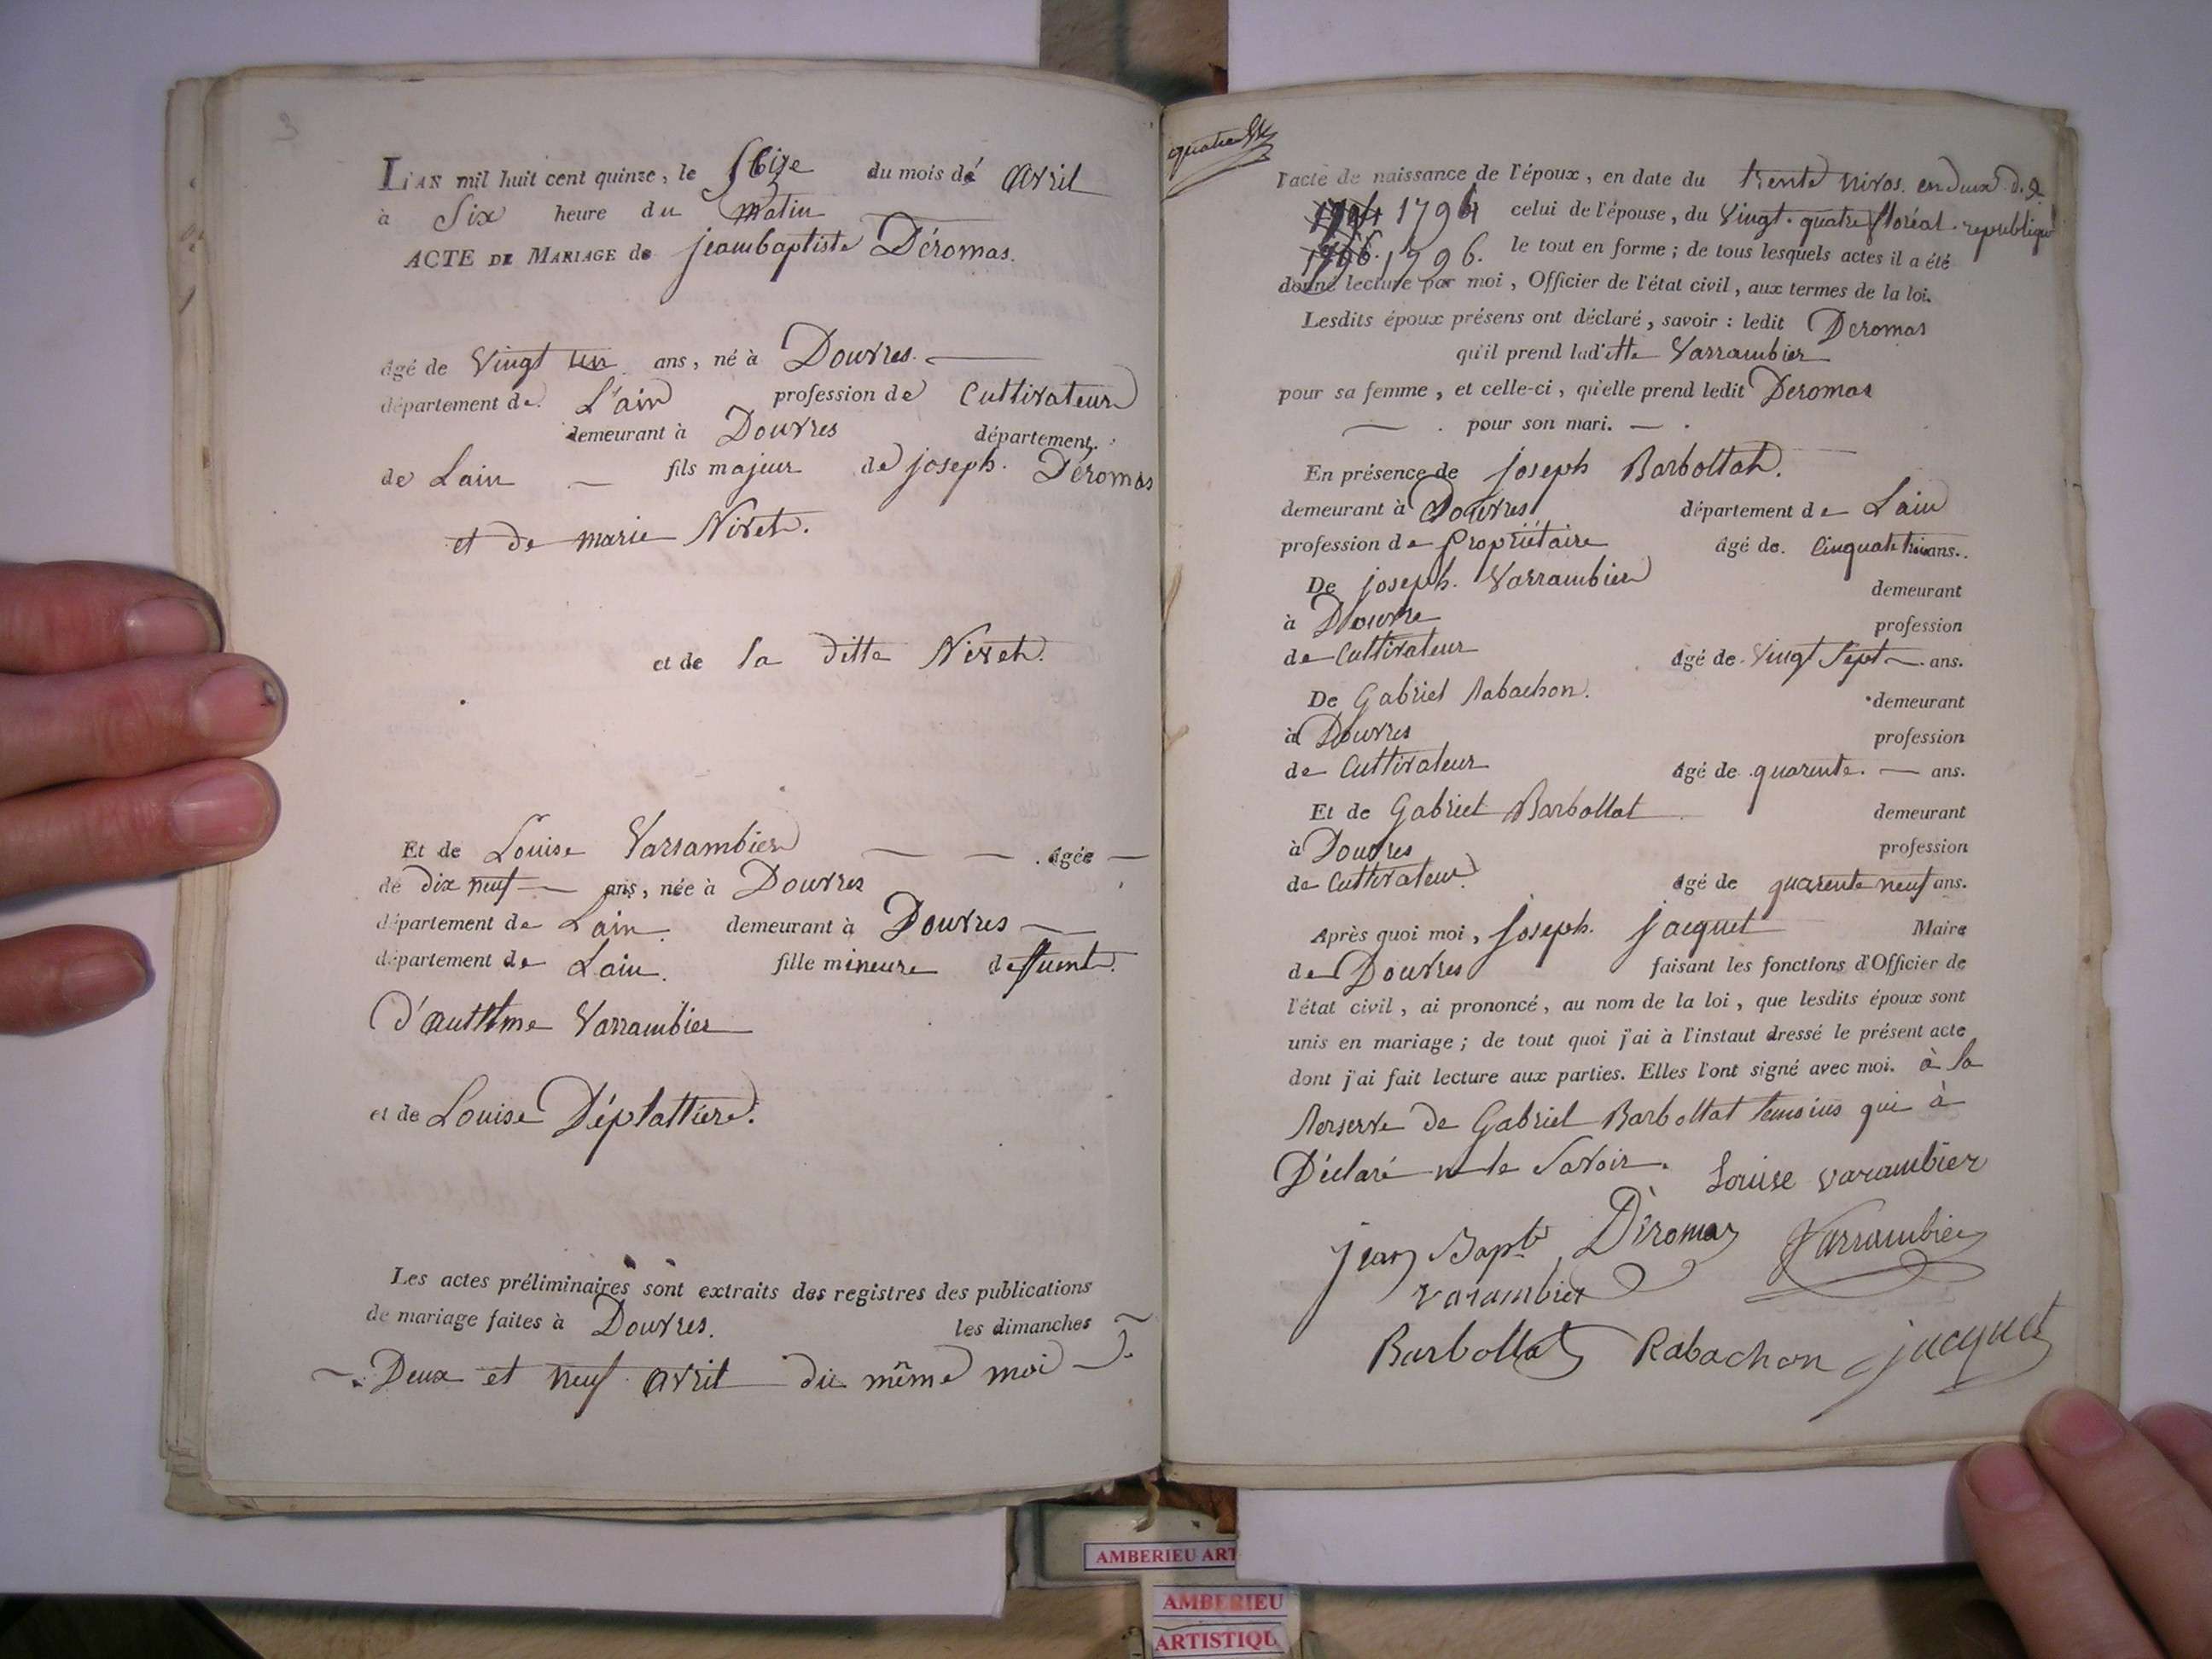 3
L'AN mil huit cent quinze, le du mois de avril
à Six heure du matin
ACTE DE MARIAGE de jeambaptiste Déromas.
âgé de Vingt un ans, né à Douvres.
département de L'ain profession de Cultivateur
demeurant à Douvres département
de Lain fils majeur de joseph. Déromas
et de marie Niveh.
et de la ditte Niveh.
Et de Louise Varrambier âgée
de dix neuf ans, née à Douvres
département de Lain. demeurant à Douvres
département de Lain. fille mineure
Varrambier
et de Louise Déplattiere.
Les actes préliminaires sont extraits des registres des publications
de mariage faites à Douvres. les dimanches
Deux et neuf avril du même moi
quatre
l'acte de naissance de l'époux, en date du trente nivos. en deux
1794 celui de l'épouse, du Vingt-quatre floréal
1796. le tout en forme; de tous lesquels actes il a été
donné lecture par moi, Officier de l'état civil, aux termes de la loi.
Lesdits époux présens ont déclaré, savoir : ledit Deromas
qu'il prend lad'itte Varrambier
pour sa femme, et celle-ci, qu'elle prend ledit Deromas
pour son mari.
En présence de joseph Barbollat.
demeurant à Douvres département de Lain
profession de propriétaire âgé de
De joseph. Varrambier demeurant
à Douvre profession
de Cultivateur âgé de Vingt Sept ans.
De Gabriel Rabachon. demeurant
à Douvres profession
de Cultivateur âgé de quarente. ans.
Et de Gabriel Barbollat demeurant
à Douvres profession
de Cultivateur. âgé de quarente neuf ans.
Après quoi moi, joseph. jacquet Maire
de Douvres faisant les fonctions d'Officier de
l'état civil, ai prononcé, au nom de la loi, que lesdits époux sont
unis en mariage; de tout quoi j'ai à l'instaut dressé le présent acte
dont j'ai fait lecture aux parties. Elles l'ont signé avec moi. à la
de Gabriel Barbollat qui à
Déclaré ne le Savoir. Louise varambier
jean Bapte Déromas Varrambier
varambier
Barbollat Rabachon jacquet
AMBERIEU ART
AMBERIEU
ARTISTIQU